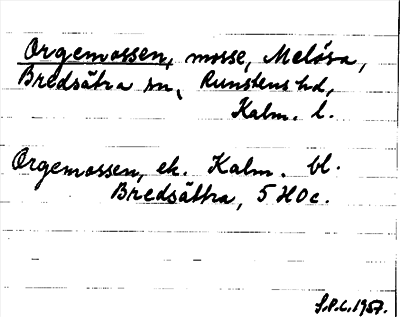 Orgemossen, mosse, Melösa,
Bredsätra sn, Runstens hd,
Kalm. l.
Orgemossen, ek. Kalm. bl.
Bredsättra, 5 H 0 c.
S.P.L. 1957.